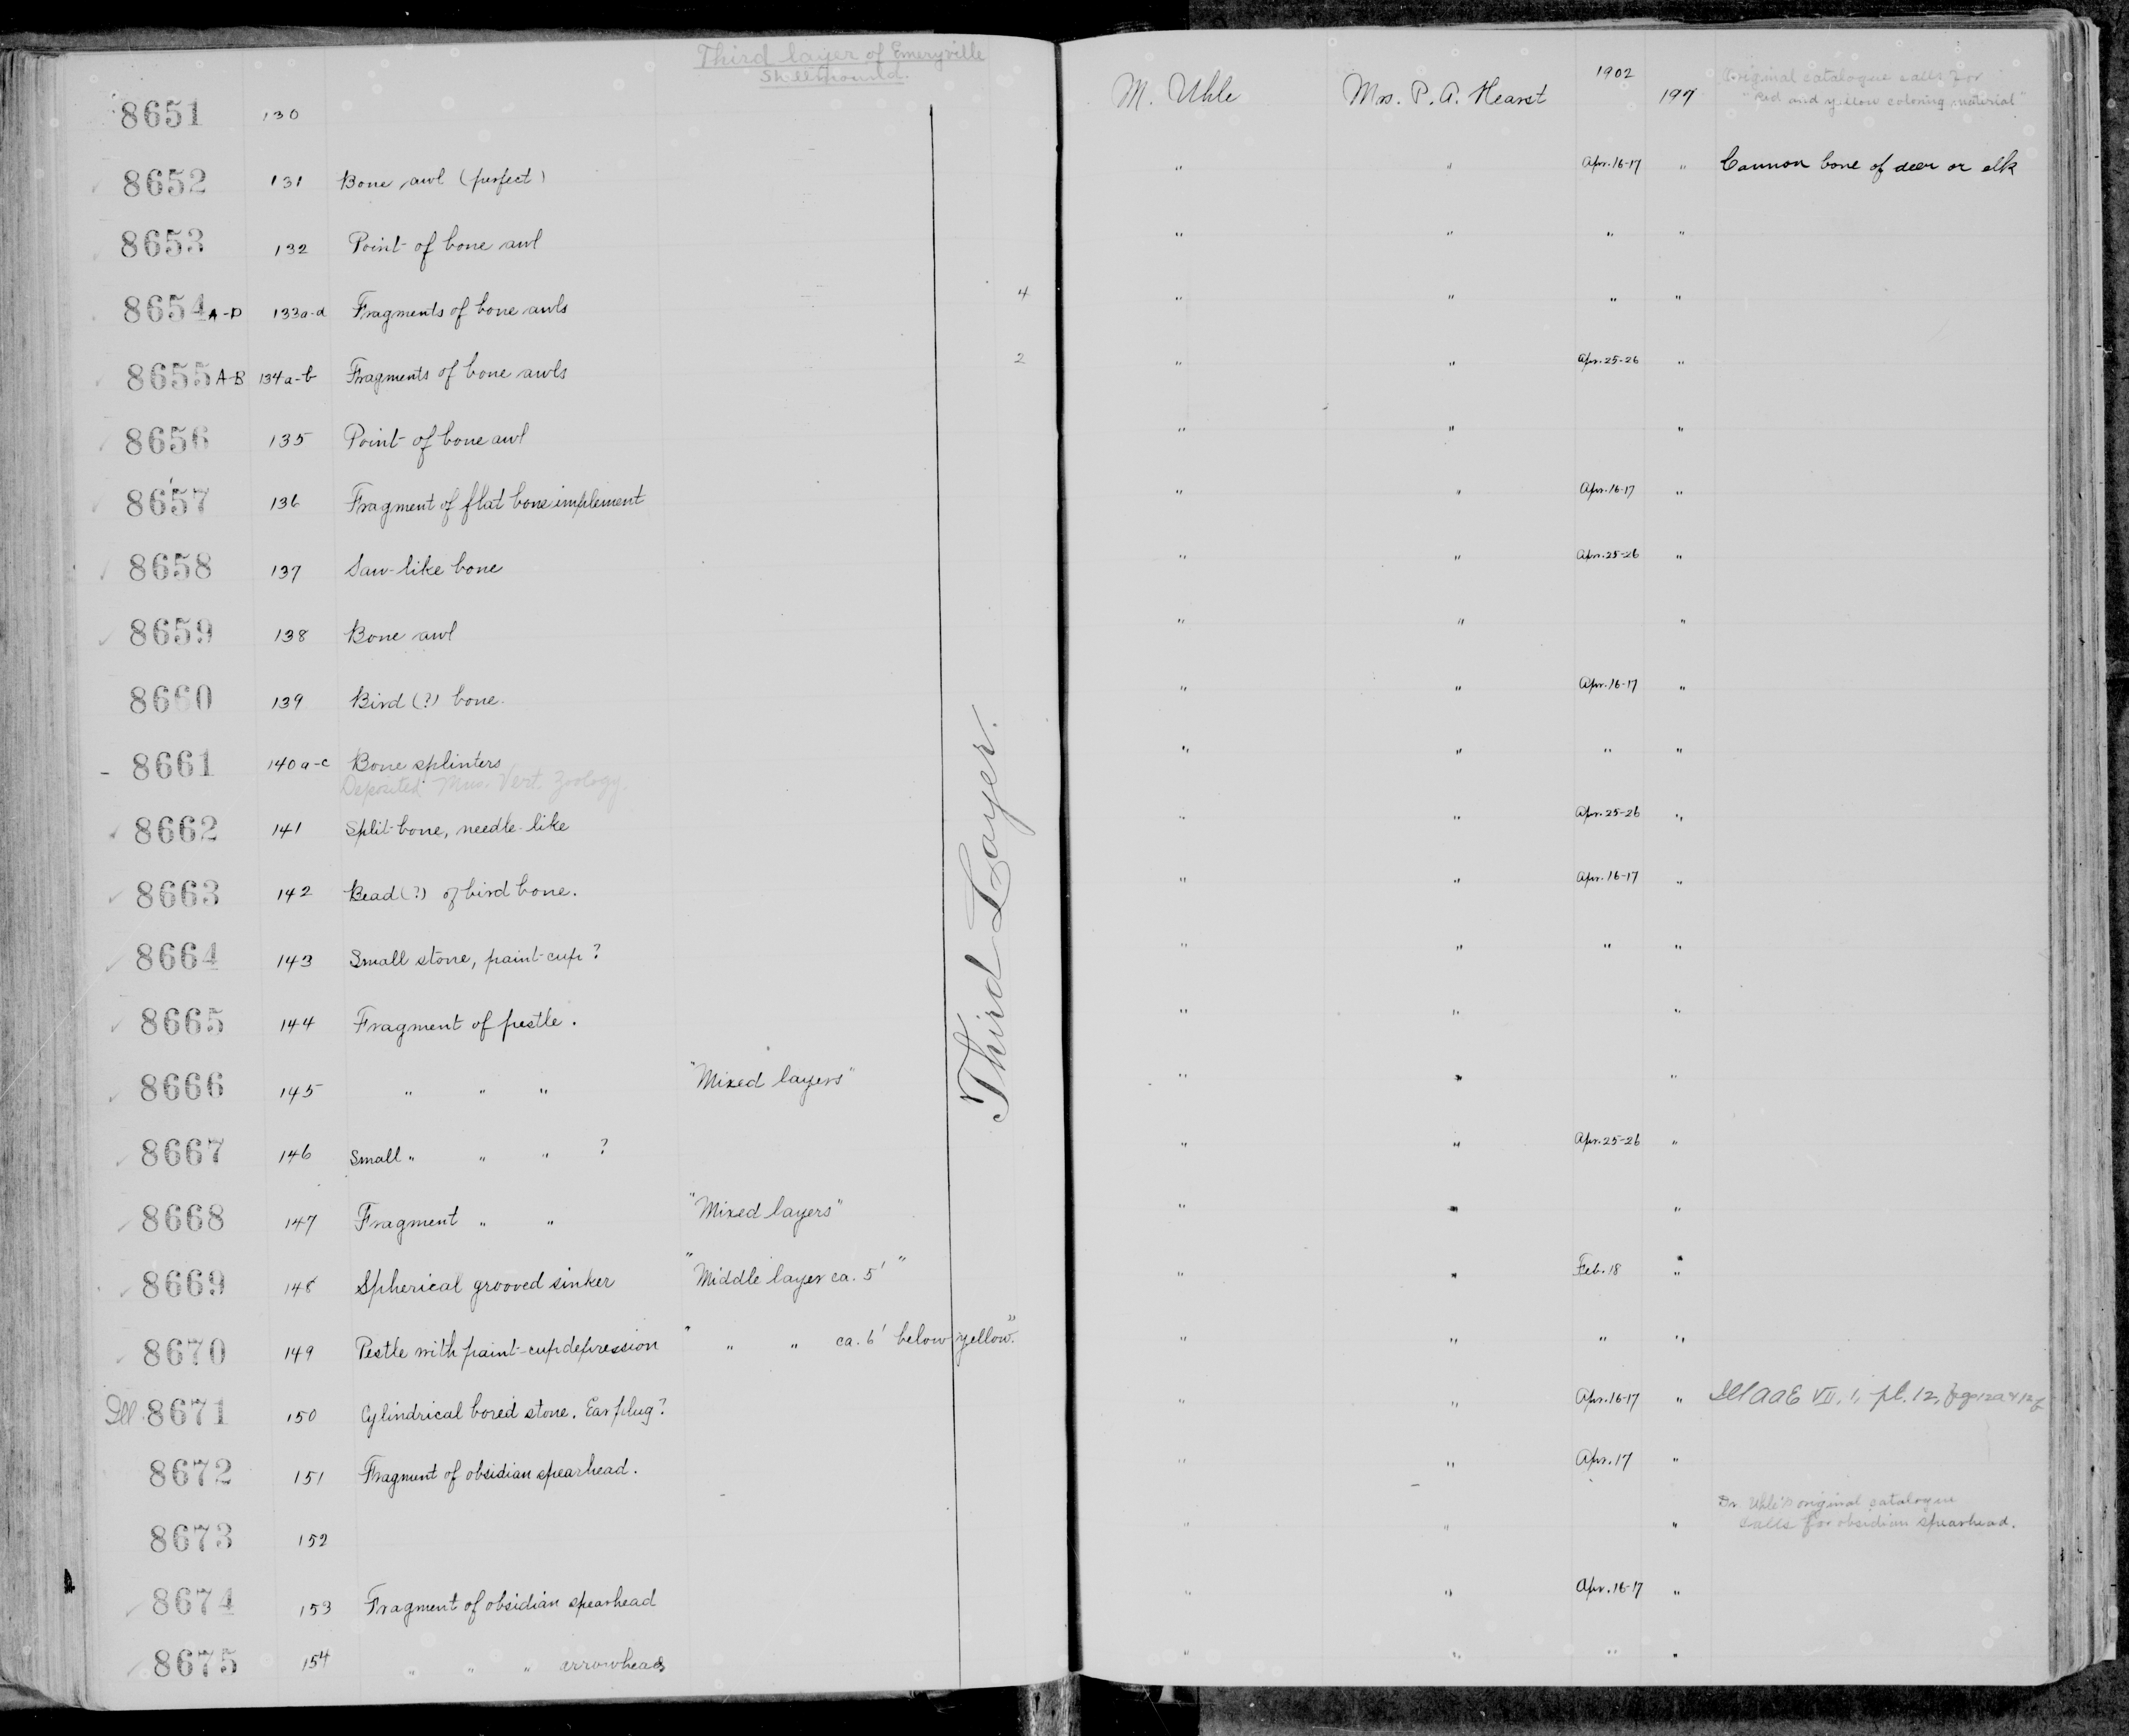 Third layer of Emeryville
Shellmound.
8651 130 M. Uhle Mrs. P. A. Hearst 1902 197 Original catalogue calls for
"Red and yellow coloring material"
8652 131 Bone awl (perfect) " " Apr. 16-17 " Cannon bone of deer or elk
8653 132 Point of bone awl " " " "
8654 A-D 133a-d Fragments of bone awls 4 " " " "
8655 A-B 134a-b Fragments of bone awls 2 " " Apr. 25-26 "
8656 135 Point of bone awl " " "
8657 136 Fragment of flat bone implement " " Apr. 16-17 "
8658 137 Saw-like bone " " Apr. 25-26 "
8659 138 Bone awl " " "
8660 139 Bird (?) bone. " " Apr. 16-17 "
- 8661 140a-c Bone splinters " " " "
Deposited Mus. Vert. Zoology.
8662 141 Split bone, needle-like " " Apr. 25-26 "
8663 142 Bead (?) of bird bone. " " Apr. 16-17 "
8664 143 Small stone, paint-cup? " " " "
8665 144 Fragment of pestle. " " "
8666 145 " " " "Mixed layers" " " "
8667 146 Small " " " ? " " Apr. 25-26 "
8668 147 Fragment " " "Mixed layers" " " "
8669 148 Spherical grooved sinker "Middle layer ca. 5'" " " Feb. 18 "
8670 149 Pestle with paint-cup depression " " " ca. 6' below yellow." " " " "
Ill. 8671 150 Cylindrical bored stone. Ear plug? " " Apr. 16-17 " Ill AAE VII, 1, pl. 12, figs 12a & 12b
8672 151 Fragment of obsidian spearhead. " " Apr. 17 "
8673 152 " " " Dr. Uhle's original catalogue
calls for obsidian spearhead.
8674 153 Fragment of obsidian spearhead " " Apr. 16-17 "
8675 154 " " " arrowheads " " " "
Third Layer.